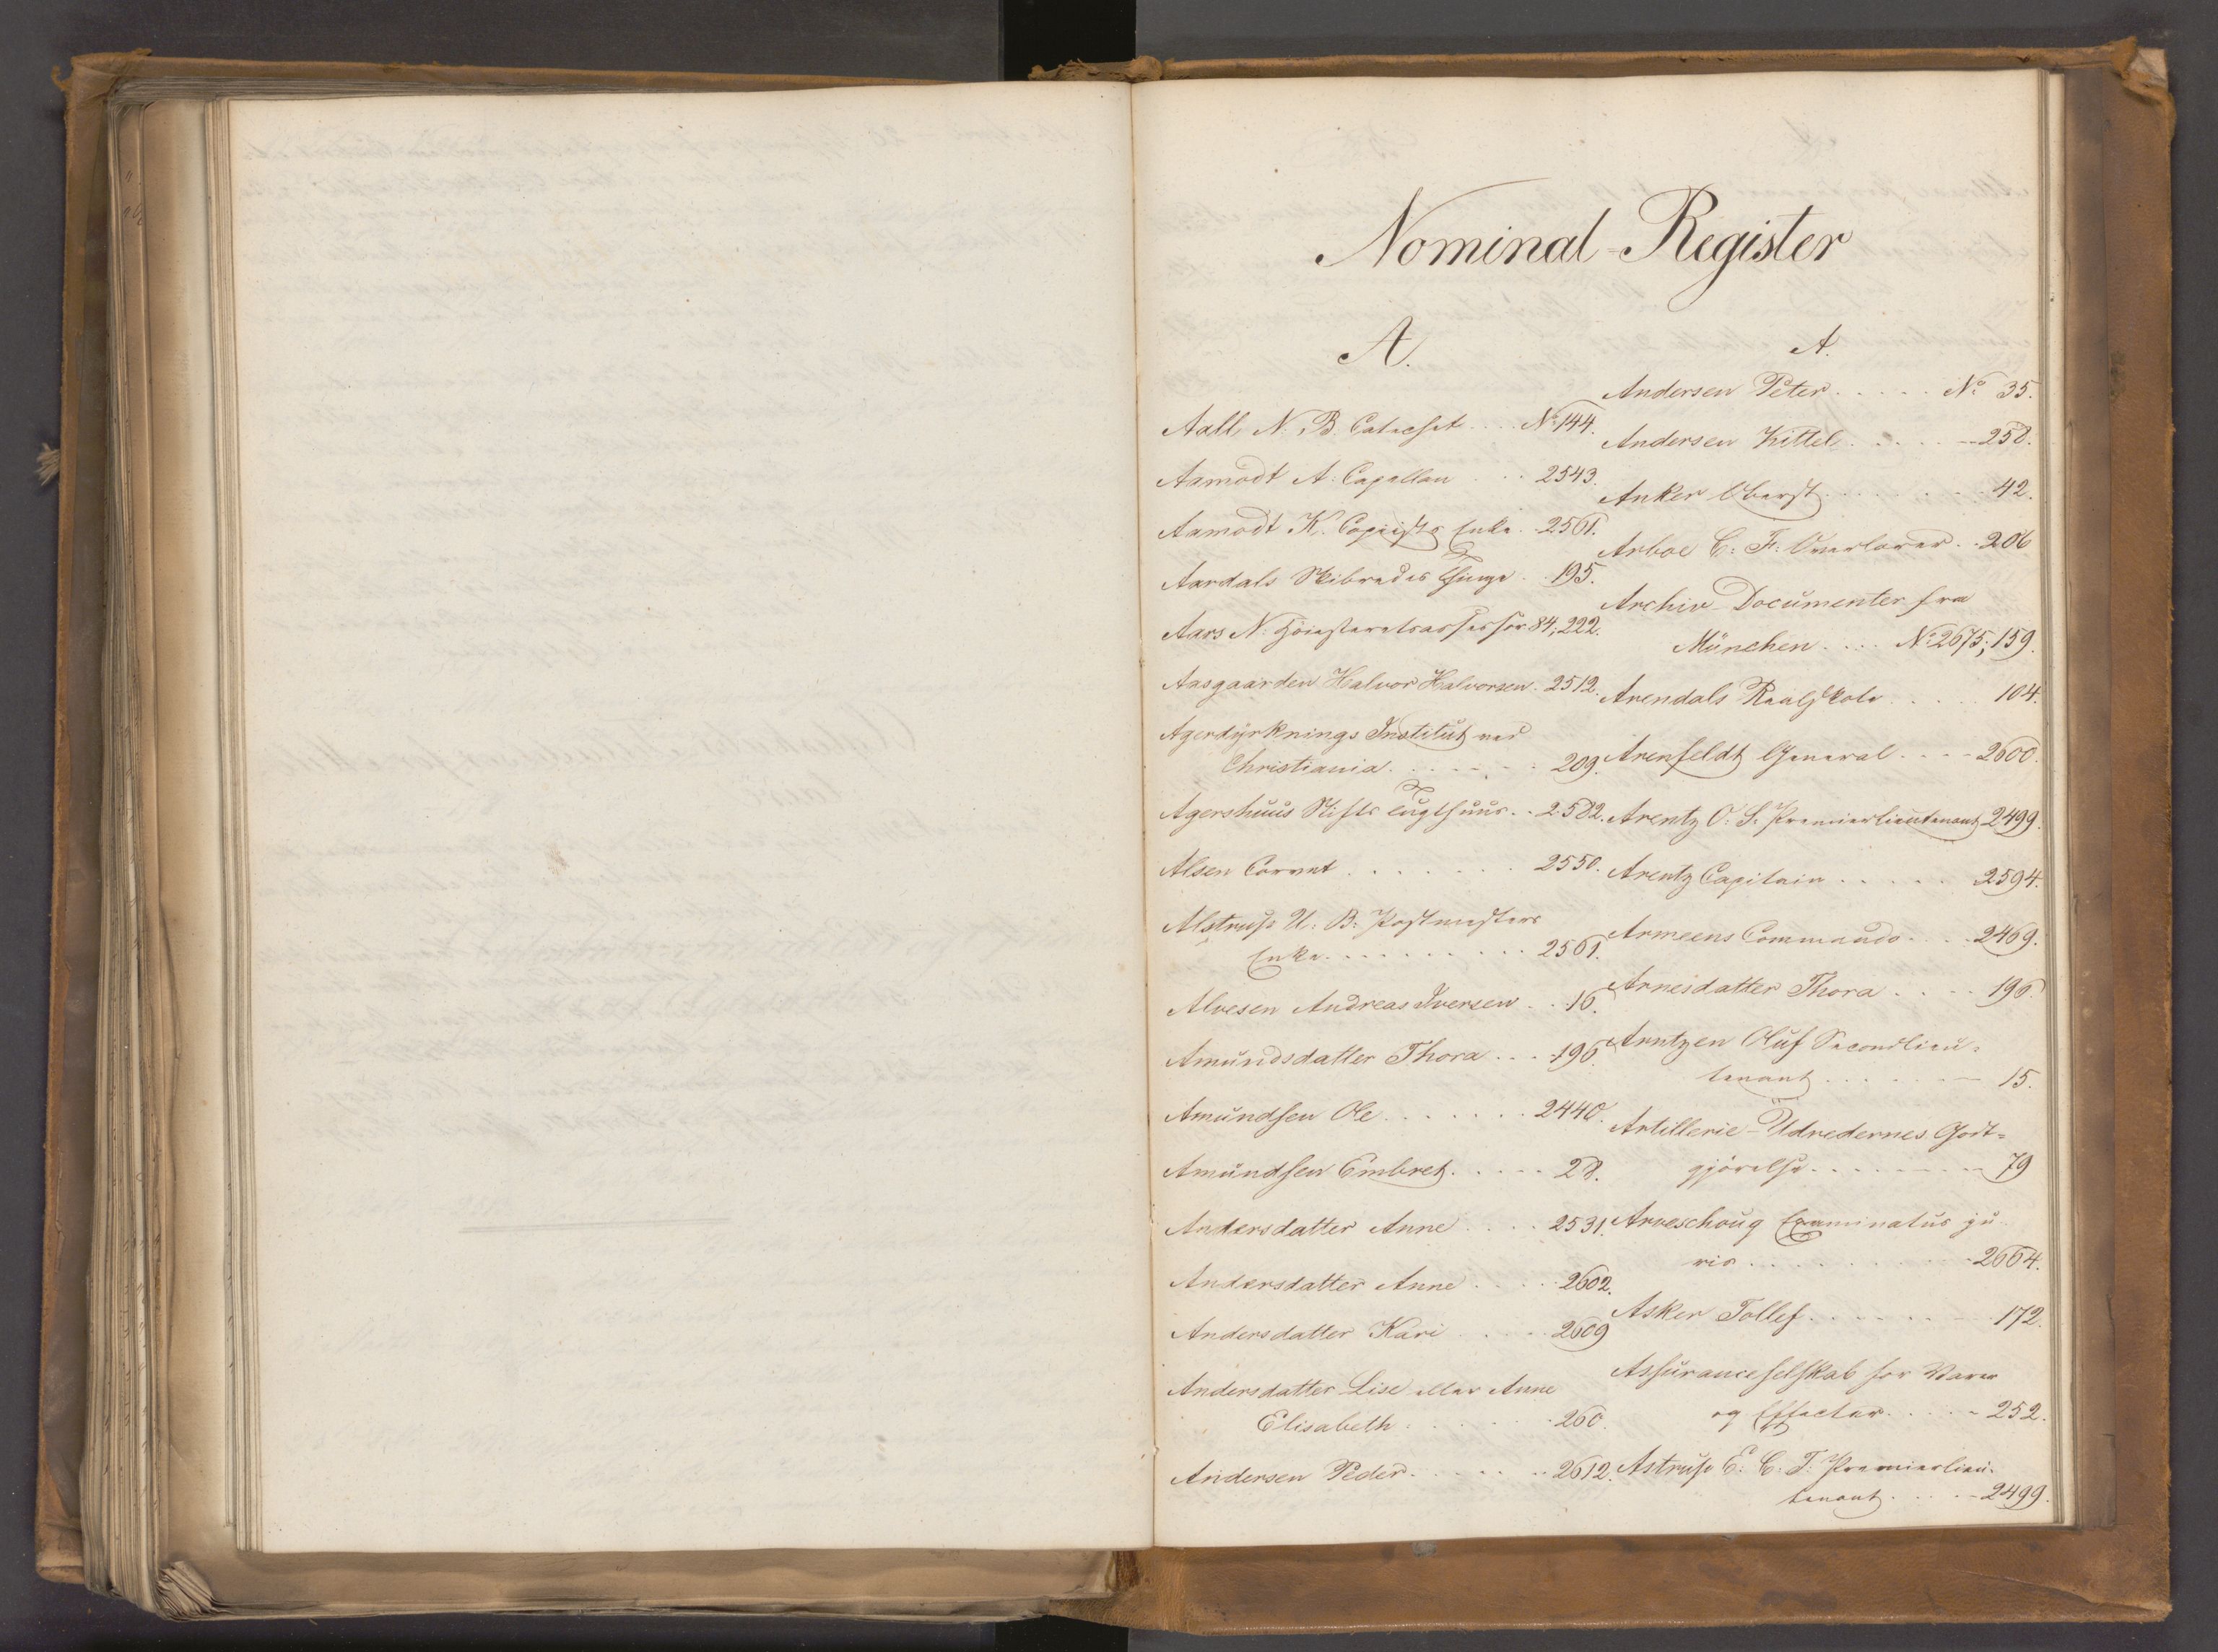 Nominal-Register
A.
Aall N. B. Catechet . . . No 144.
Aamodt A: Capellan . . . 2543.
Aamodt K. Copiists Enke . 2561.
Aardals Skibredes Thinge . . 195.
Aars N: Höiesteretsassessor 84; 222.
Aasgaarden Halvor Halvorsen . 2512.
Agerdyrknings Institut ved
Christiania . . . . . . 209.
Agershuus Stifts Tugthuus . . 2582.
Alsen Cornet . . . . . . . 2550.
Alstrup U: B: Postmesters
Enke . . . . . . . . . . 2561.
Alvesen Andreas Iversen . . 16.
Amundsdatter Thora . . . 196.
Amundsen Ole . . . . . . . 2440.
Amundsen Embret . . . . . 28.
Andersdatter Anne . . . . 2531.
Andersdatter Anne . . . . . 2602.
Andersdatter Kari . . . . . 2609
Andersdatter Lise eller Anne
Elisabeth . . . . . . . 260.
Andersen Peder . . . . . . . 2612.
A.
Andersen Peter . . . . . No 35.
Andersen Kittel . . . . . 258.
Anker Oberst . . . . . . . 42.
Arboe C: F: Overlærer . . 206
Archiv-Documenter fra
München . . . . No 2675; 159.
Arendals Realskole . . . . . 104.
Arenfeldt General . . . . 2600.
Arentz O: S: Premierlieutenant 2499.
Arentz Capitain . . . . . 2594.
Armeens Commando . . . . 2469.
Arnesdatter Thora . . . . 196.
Arntzen Oluf Secondlieu-
tenant . . . . . . 15.
Artillerie-Udredernes Godt-
gjörelse . . . . . . . . 79
Arveschoug Examinatus ju-
ris . . . . . . . . . . 2664.
Asker Tollef . . . . . . . . 172.
Assuranceselskab for Varer
og Effecter . . . . . 252.
Astrup E: C: T: Premierlieu-
tenant . . . . . 2499.